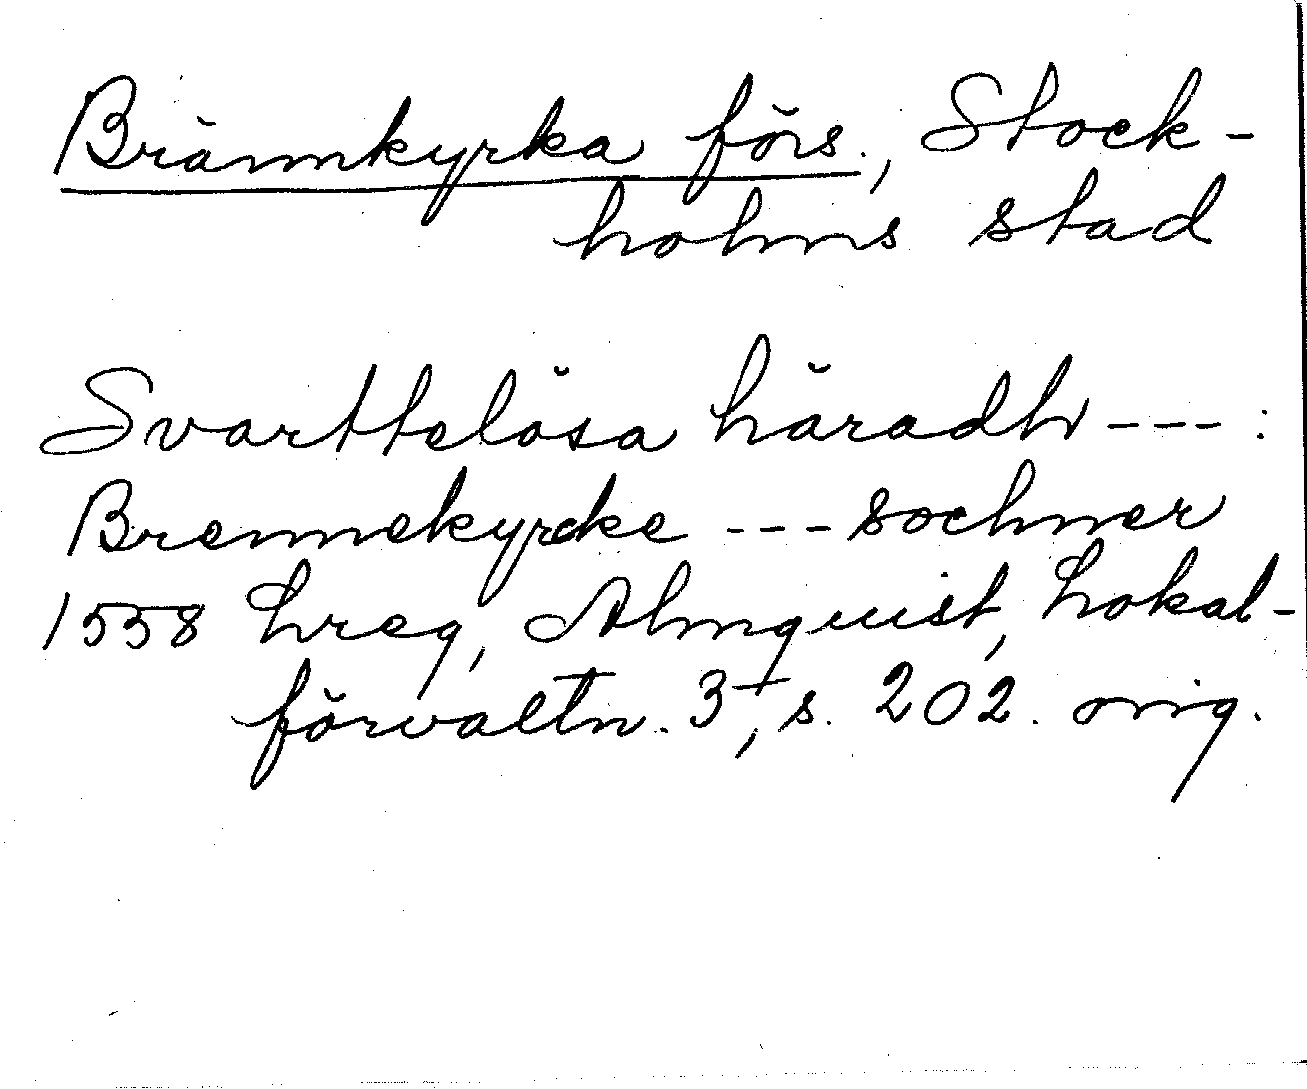 Brännkyrka förs., Stock-
holms stad
Svarttelösa häradh ---:
Brennekyrcke --- sochner
1558 hreg, Almquist, Lokal-
förvaltn. 3, s. 202. orig.